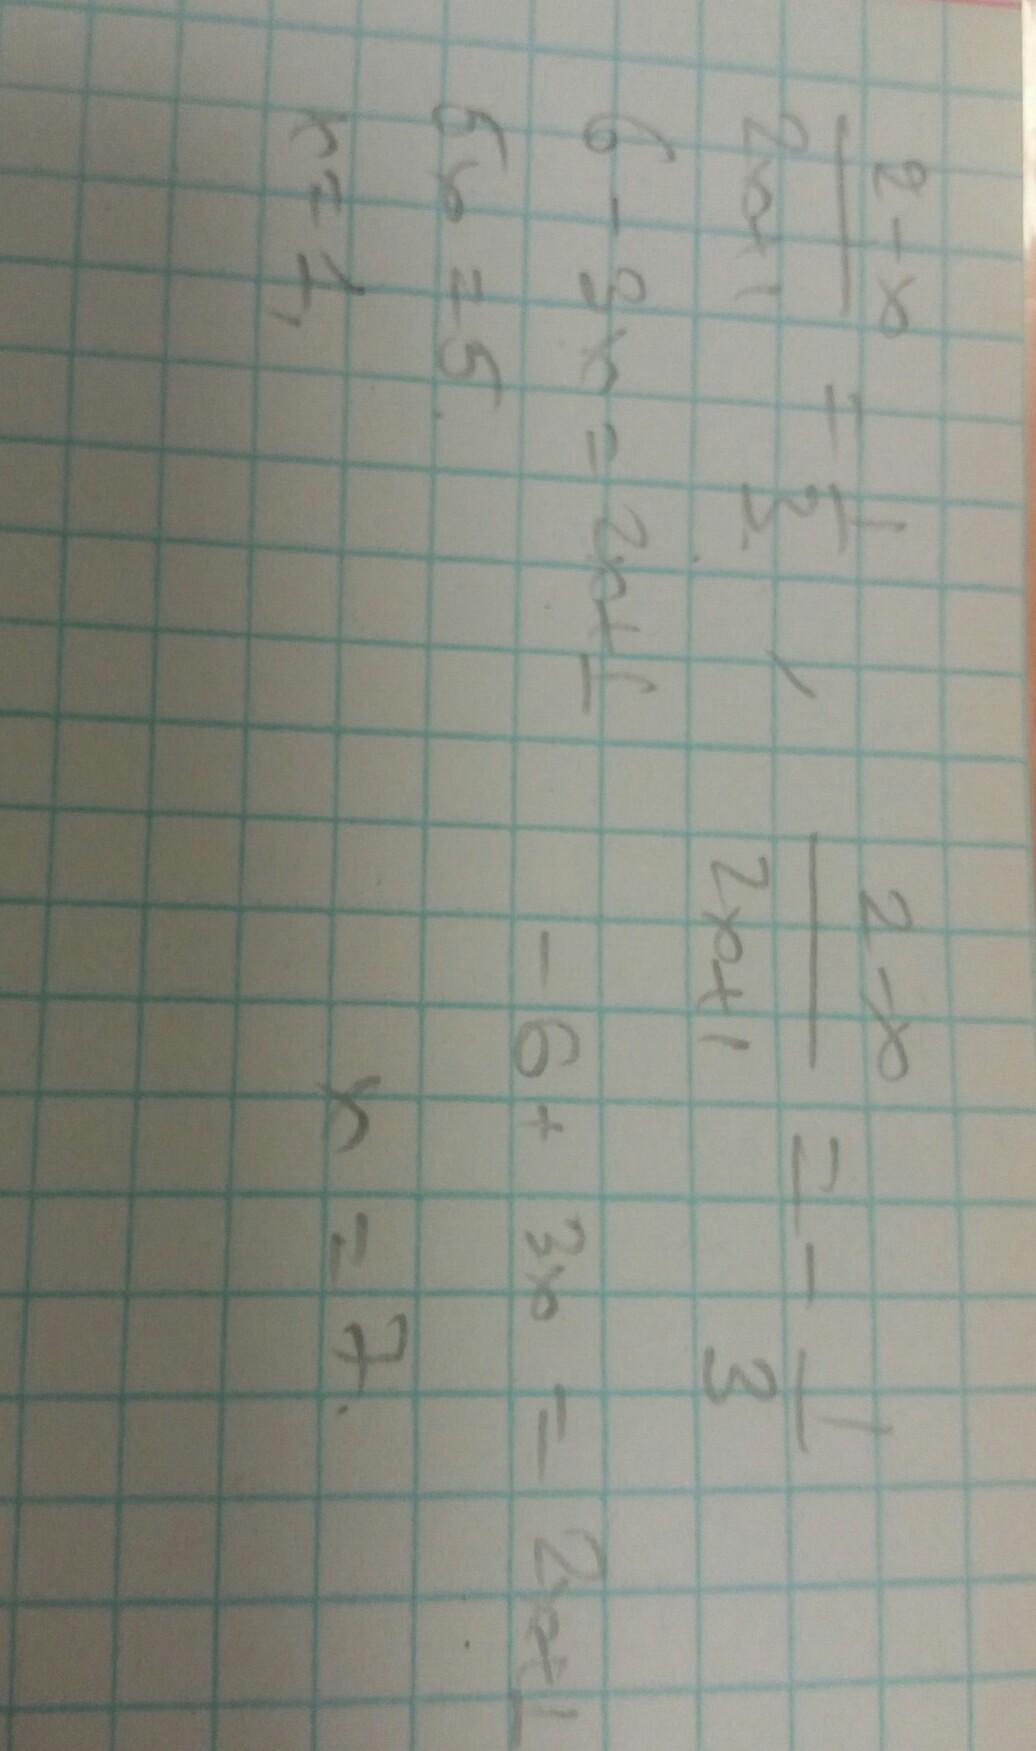 2-x/2x+1 = 1/3 , 2-x/2x+1 = - 1/3
6 - 3x = 2x+1 - 6 + 3x = 2x+1
5x = 5.
x = 1, x = 7.